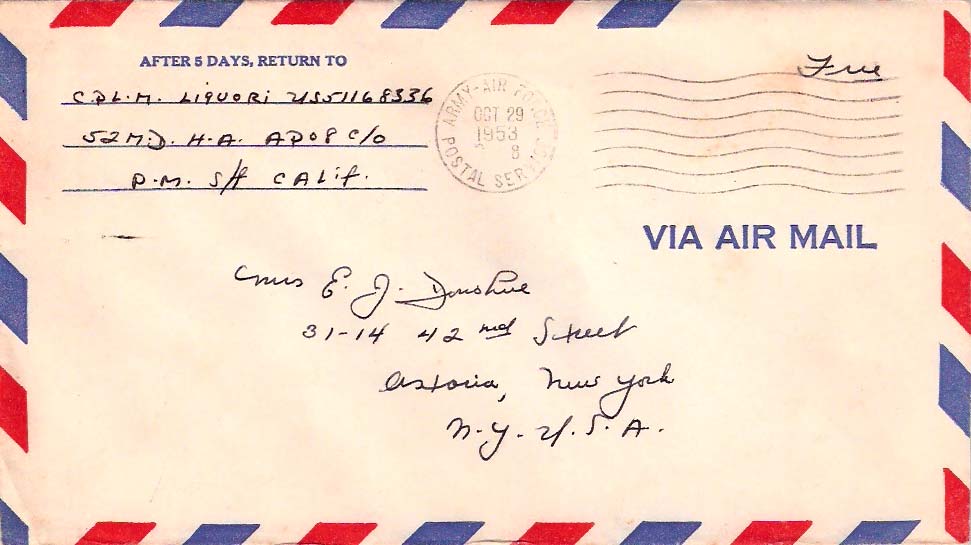 AFTER 5 DAYS, RETURN TO
CPL. M. LIQUORI US51168336
52 M.D. H.A. APO 8 C/O
P.M. S/F CALIF.
ARMY-AIR FORCE
OCT 29
1953
8
POSTAL SERVICE
Free
VIA AIR MAIL
Mrs E. J. Donohue
31-14 42nd Street
Astoria, New York
N.Y. U.S.A.